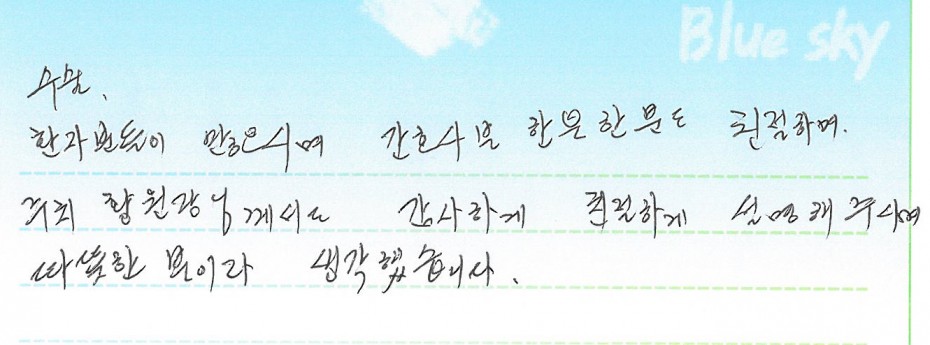 Blue sky
우선.
환자분들이 많으시며 간호사분 한분한분도 친절하며.
주최 황원장님께서도 감사하게 친절하게 설명해주시며
따뜻한 분이라 생각했습니다.